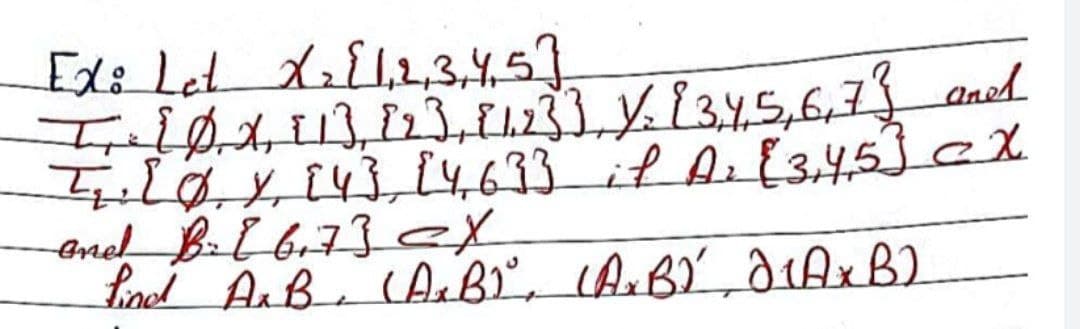 Ex: Let X = {1,2,3,4,5}
T₁ = {Ø, X, {1}, {2}, {1,2}}, Y = {3,4,5,6,7} and
T₂ = {Ø, Y, {4}, {4,6}} if A = {3,4,5} ⊂ X
and B = {6,7} ⊂ Y
find A×B, (A×B)°, (A×B)', ∂(A×B)